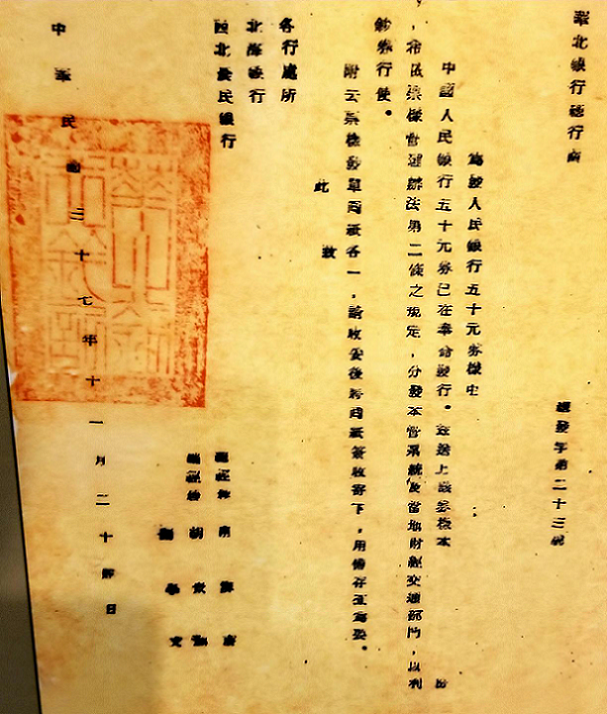 華北銀行總行函
總發字第二十三號
為發人民銀行五十元券樣由
中國人民銀行五十元券已在奉命發行。茲送上該券樣本 份
,希依票樣管理辦法第二條之規定,分發本管系統及當地財經交通部門,以利
鈔券行使。
附云票樣簽單兩紙各一,請收妥後將回紙簽收寄下,用備存查為要。
此 致
各行處所
北海銀行
西北農民銀行
總經理 南漢宸
副經理 胡景澐
關學文
中華民國三十七年十一月二十 日